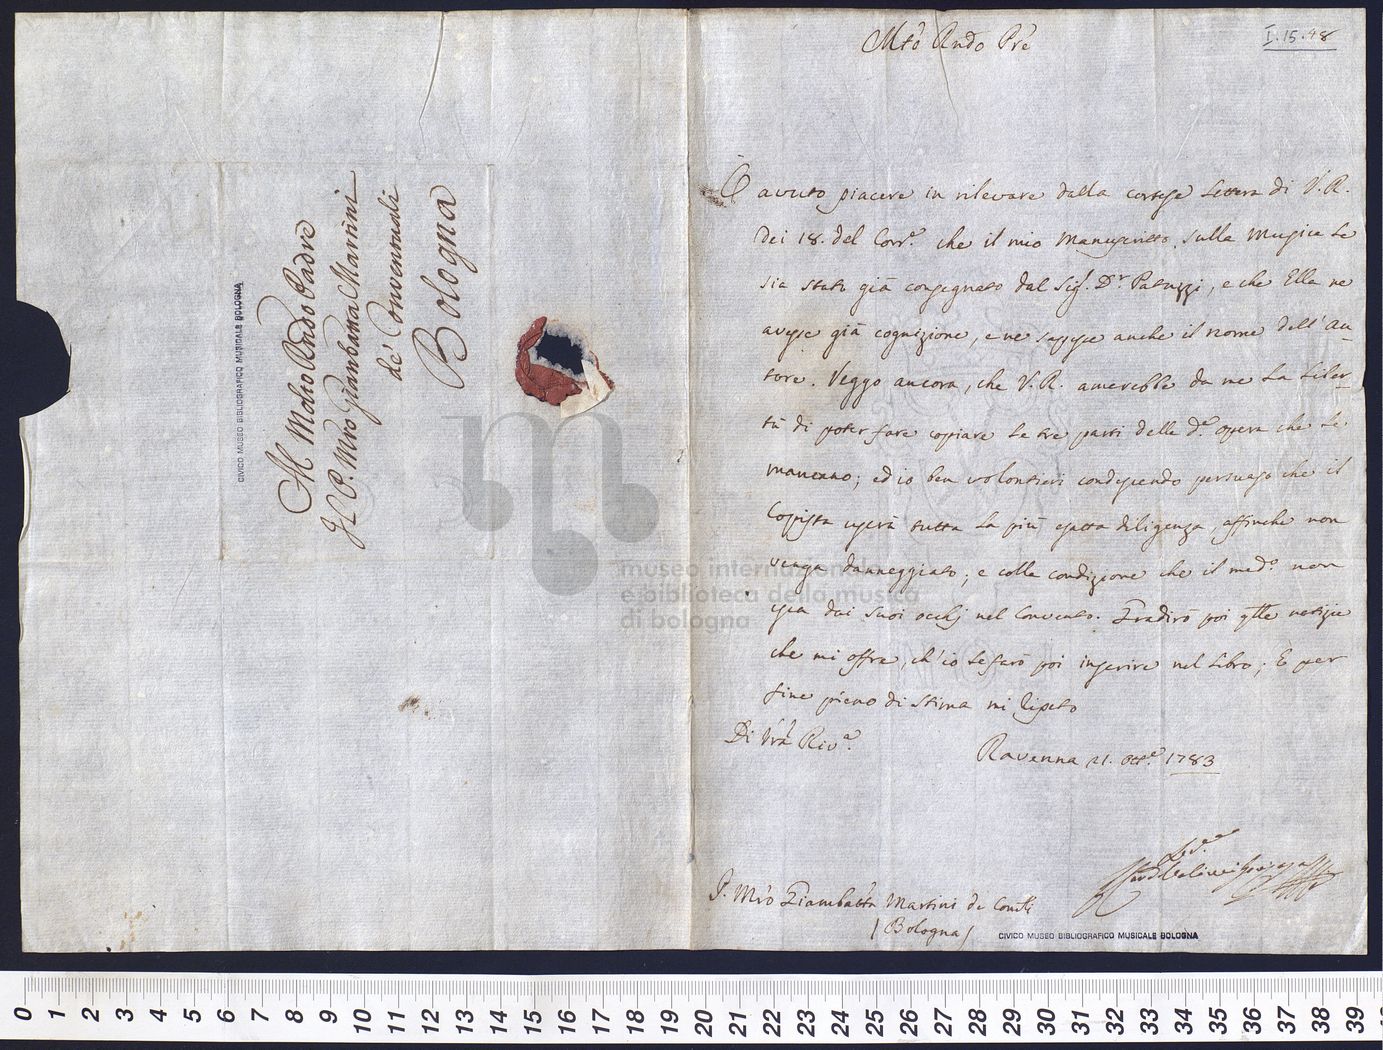 Al Molto Rndo Padre
Il P. Mro Giambatta Martini
de' Conventuali
Bologna
CIVICO MUSEO BIBLIOGRAFICO MUSICALE BOLOGNA
I.15.48
Mto Rndo Pre
Ò avuto piacere in rilevare dalla cortese Lettera di V. R.
dei 18. del Corr.e che il mio Manuscritto sulla Musica Le
sia stato già consegnato dal Sig. D.r Patuzzi, e che Ella ne
avesse già cognizione, e ne sapesse anche il nome dell'Au-
tore. Veggo ancora, che V. R. amerebbe da me La Liber-
tà di poter fare copiare Le tre parti delle d.a opera che Le
mancano; ed io ben volontieri condiscendo persuaso che il
Copista userà tutta La più esatta diligenza, affinche non
venga danneggiato; e colla condizione che il med.o non
esca dai suoi occhj nel Convento. Gradirò poi qlle notizie
che mi offre, ch'io Le farò poi inserire nel Libro; E per
fine pieno di stima mi ripeto
Di Vra Riv.a
Ravenna 21. ott.e 1783
P. Mro Giambatta Martini de Conlli
(Bologna)
CIVICO MUSEO BIBLIOGRAFICO MUSICALE BOLOGNA
museo internazionale
e biblioteca della musica
di bologna
0 1 2 3 4 5 6 7 8 9 10 11 12 13 14 15 16 17 18 19 20 21 22 23 24 25 26 27 28 29 30 31 32 33 34 35 36 37 38 39